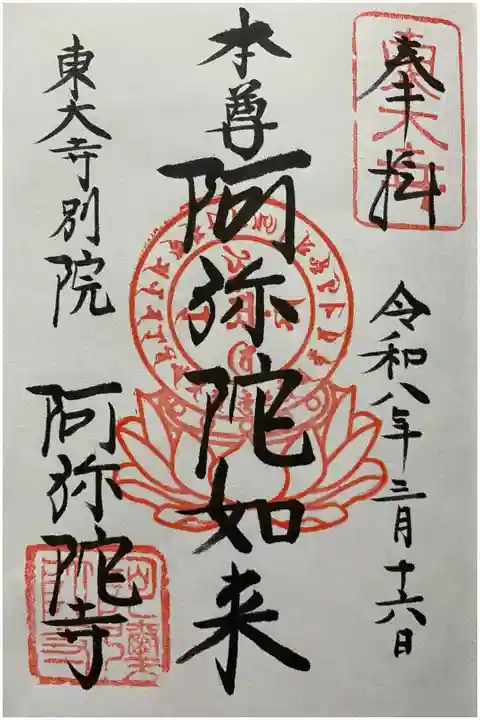 奉拝
令和八年三月十六日
本尊 阿弥陀如来
東大寺別院
阿弥陀寺